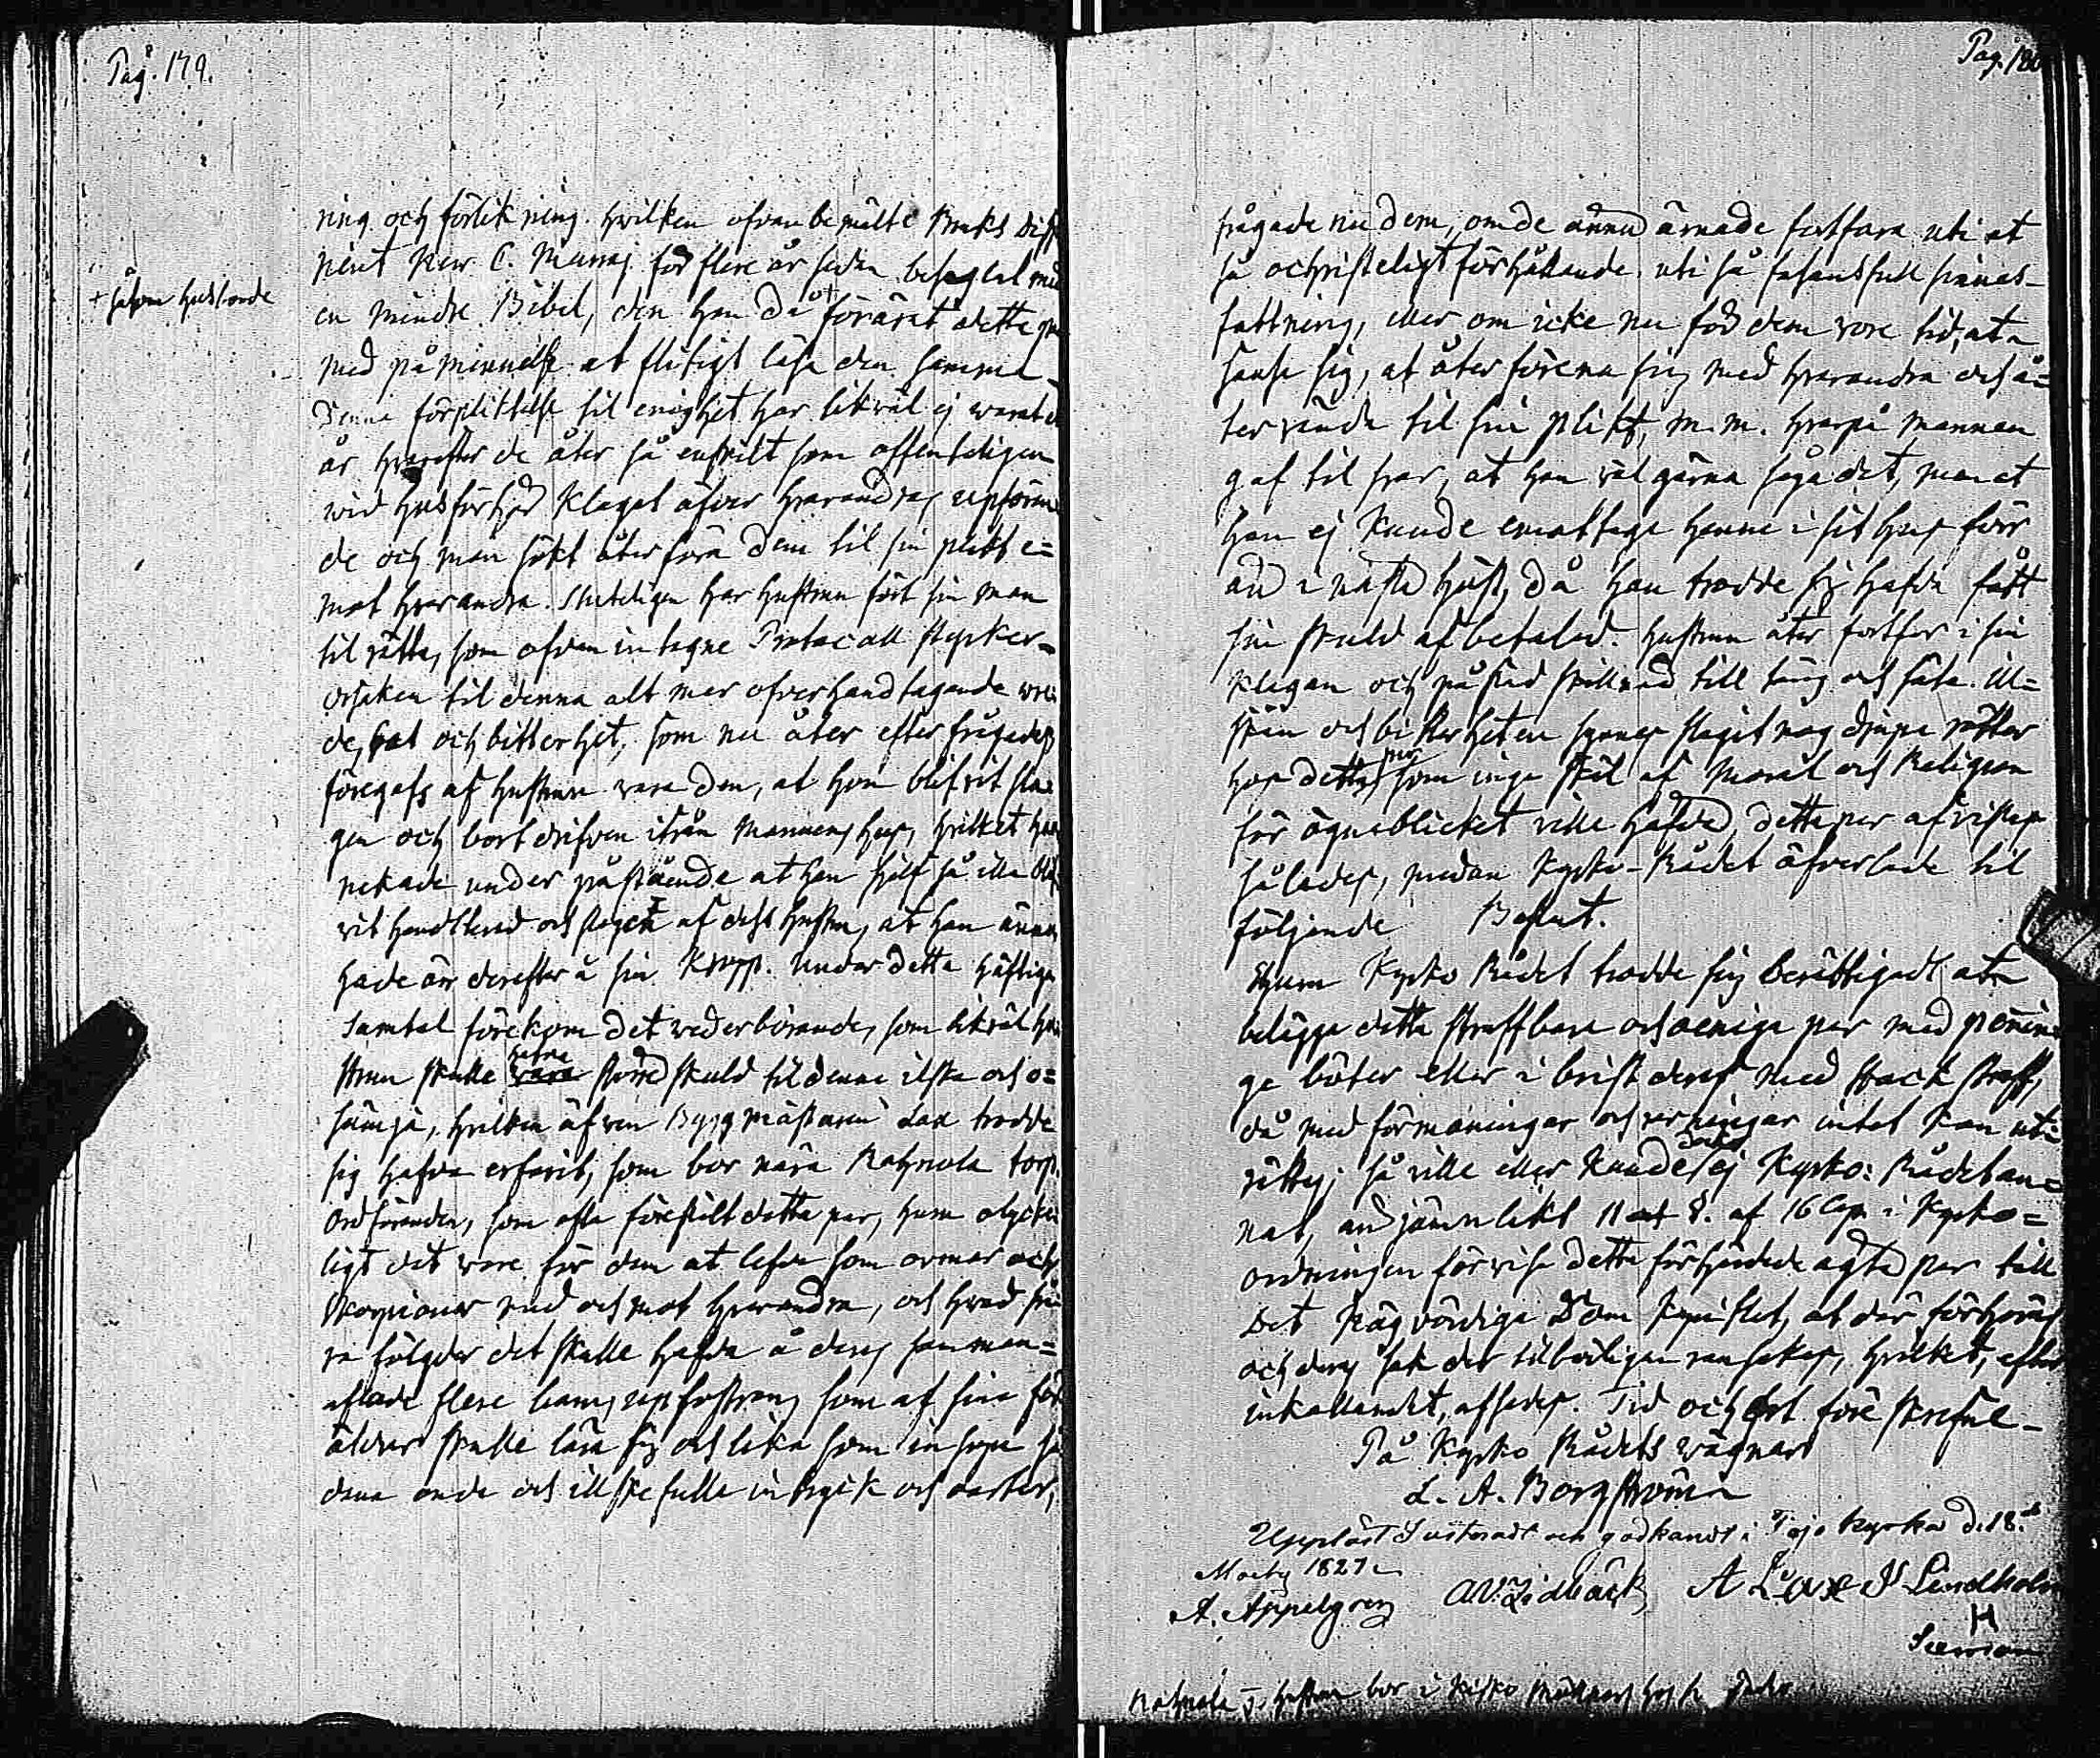 Pag. 179.
ning och förlikning. hvilken ofvanbemälte Bruks Disp
nent Herr C. Munny för flere år sedan beseglat med
+ såsom husbonde
en mindre Bibel, den han då + förärat detta par
med påminnelse at flitigt läsa den samma.
Denna förpliktelse til enighet har likväl ej warat
år hvarefter de åter så enskilt som offentligen
wid husförhör klagat öfver hvarandras upföran
de och man sökt återföra dem til sin plikt e=
mot hvarandra. Sluteligen har hustrun fört sin man
til rätta, som ofvan intagne Protocoll stycker.
Orsaken til denna alt mer ofverhandtagande wre
de, hat och bitterhet, som nu åter efterfrågades
föregafs af hustrun vara den, at hon blifvit sla=
gen och bortdrifven ifrån Mannens hus, hvilket han
nekade under påstående at han sjelf så illa blif
vit handterad och stagen af dess hustru, at han ännu
hade ärr derefter å sin Kropp. Under detta häftiga
samtal förekom det wederbörande, som likväl hu
strun skulle vara hafva större skuld til denna ilska och o=
sämja, hvilken äfven Byggmästaren Lax trodde
sig hafva erfarit, som bor nära Rahnola torp.
Ordföranden, som ofta förestält detta par, huru olycke
ligt det vore för dem at lefva som ormar och
Skorpioner med och mot hvarandra, och hvad
ra följder det skulle hafva å deras samman=
aflade flere barns upfostran, som af sina för
äldrar skulle lära sig och lika som insupa så
dana onda och illskefulla intryck och laster,
Pag. 180
frågade nu dem, om de ännu ärnade fortfara uti et
så ochristeligt förhållande, uti så fasansfull sinnes-
fattning, eller om icke nu för dem vore tid, at
sansa sig, at åter förena sig med hvarandra och å=
tervända til sin plikt, m.m. hvarpå mannen
gaf til svar, at han väl gärna såge det, men at
han ej kunde emottaga henne i sit hus förr
än i nästa höst, då han trodde sig hafva fått
sin skuld afbetalad. Hustrun åter fortfor i sin
klagan och påstod skillnad till säng och säte. Ill=
skan och bitterheten synes slagit nog djupa rötter
hos detta par som inga skäl af Moral och Religion
för ögnablicket ville häfva, detta par afvistes
således, medan Kyrko-Rådet öfverlade til
följande Beslut.
Ehuru Kyrko Rådet trodde sig berättigadt at
belägga detta straffbara och oeniga par med pennin
ge böter eller i brist deraf med stock straff,
då med förmaningar och varningar intet kan ut
rättas; så ville eller kunde dock ej Kyrko-Rådet an=
nat, än jämnlikt 11 §. af 16 Cap. i Kyrko=
ordningen förvisa detta förhärdade ägta par till
Det Högvördiga Dom Kapitlet, at där förhöras
och deras sak der tilbörligen ransakas, hvilket, efter
inkallandet, afsades. Tid och Ort föreskrefne.
På Kyrko Rådets vägnar
L. A. Borgström
Uppläst Justerat och godkändt i Tojo kyrka d. 18.de
Martij 1827
A. Appelgren A. V. Lidbäck A Lax J Lindholm
H
Rahnola j. hustrun bor i Kisko